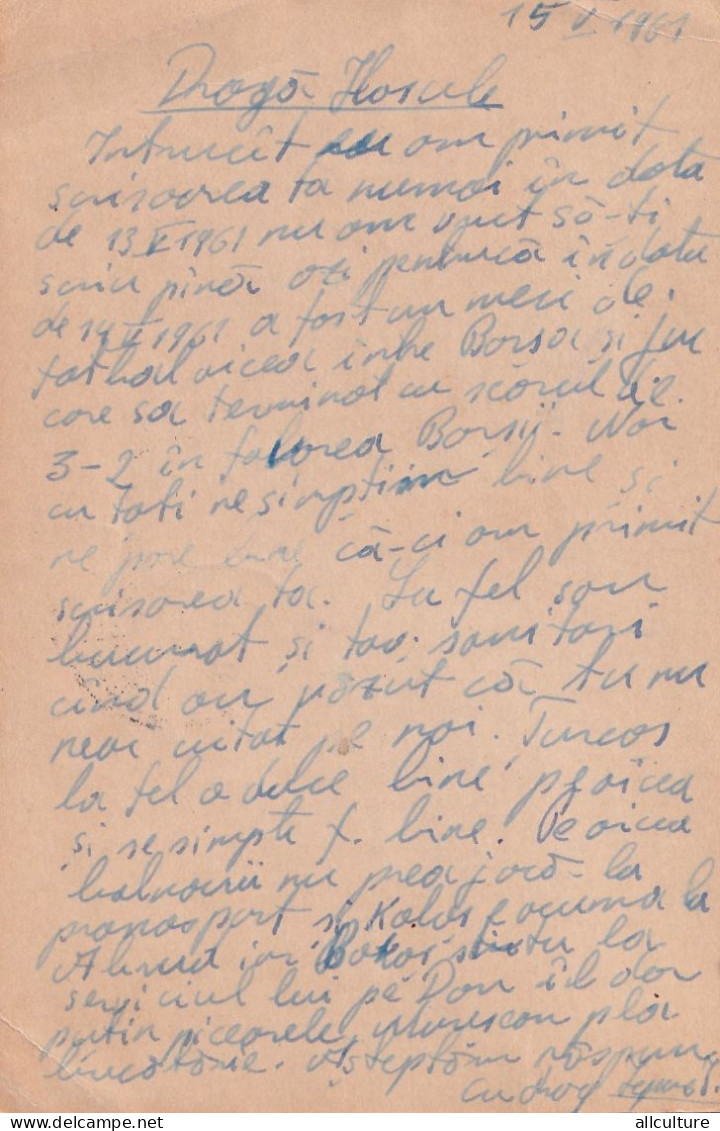 15 V 1961
Dragă
Întrucît am primit
scrisoarea ta numai în data
de 13 V 1961 nu am putut să-ți
scriu pînă azi pentrucă în data
de 14 V 1961 a fost un meci de
fotbal aicea între Borsa și
care sa terminat cu scorul de
3-2 în favorea Borsii. Noi
cu toți ne simptim bine și
ne pare bine că-ci am primit
scrisorea ta. La fel sau
bucurat și tov. sanitari
cînd au văzut că tu nu
neai uitat pe noi.
la fel o duce bine p aicea
și se simpte f. bine. Pe aicea
nu prea joacă la
pronosport și Kolos e acuma la
iar știtu la
serviciul lui pe Don îl dor
putin piceorele, Muresan pla
bucotărie. Asteptăm răspuns
cu drag
allculture